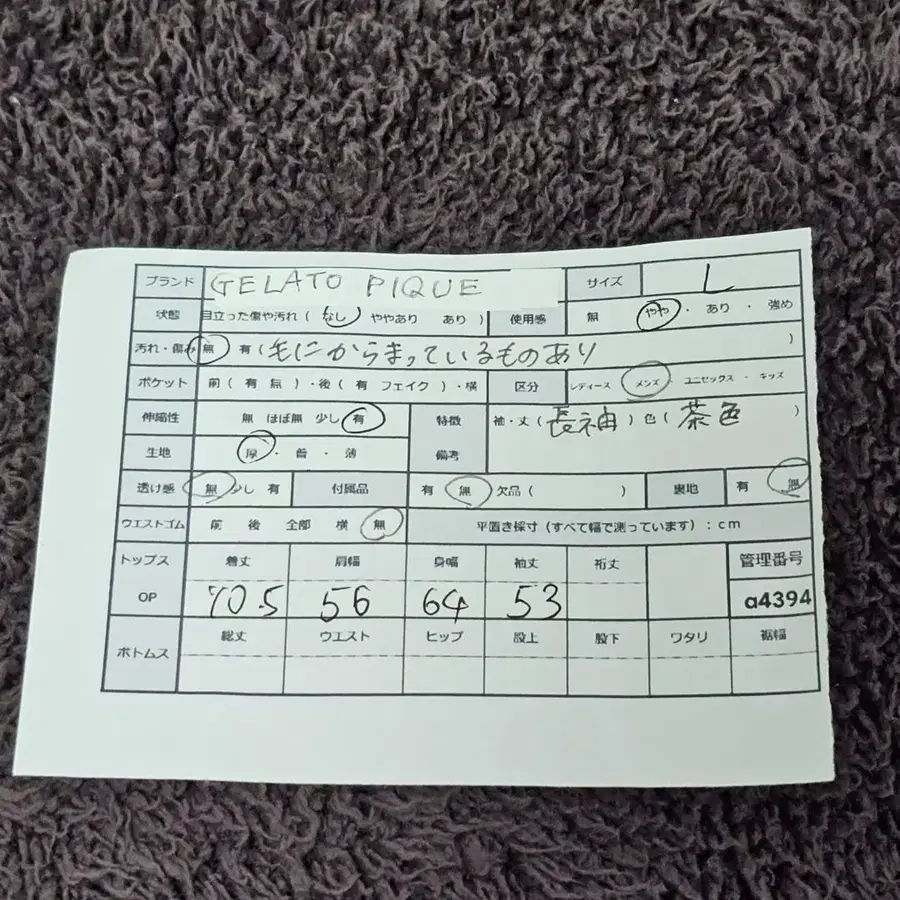 ブランド GELATO PIQUE サイズ L
状態 目立った傷や汚れ ( なし ・ ややあり あり ) 使用感 無 やや ・ あり ・ 強め
汚れ・傷み 無 有 ( 毛にからまっているものあり )
ポケット 前 ( 有 無 ) ・ 後 ( 有 フェイク ) ・ 横 区分 レディース メンズ ・ ユニセックス ・ キッズ
伸縮性 無 ほぼ無 少し 有 特徴 袖・丈 ( 長袖 ) 色 ( 茶色 )
生地 厚 ・ 普 ・ 薄 備考
透け感 無 少し 有 付属品 有 無 欠品 ( ) 裏地 有 無
ウエストゴム 前 後 全部 横 無 平置き採寸 (すべて幅で測っています) : cm
トップス 着丈 肩幅 身幅 袖丈 裄丈 管理番号
OP 70.5 56 64 53 a4394
ボトムス 総丈 ウエスト ヒップ 股上 股下 ワタリ 裾幅